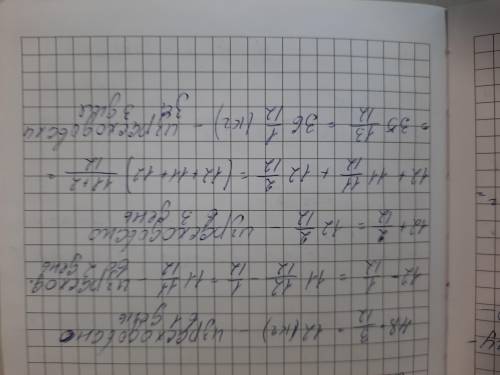 48 · 3/12 = 12 (кг) – израсходовано в 1 день
12 - 1/12 = 11 12/12 - 1/12 = 11 11/12 – израсход. во 2 день
12 + 2/12 = 12 2/12 – израсходовано в 3 день
12 + 11 11/12 + 12 2/12 = (12+11+12) 11+2/12 =
= 35 13/12 = 36 1/12 (кг) – израсходовали за 3 дня